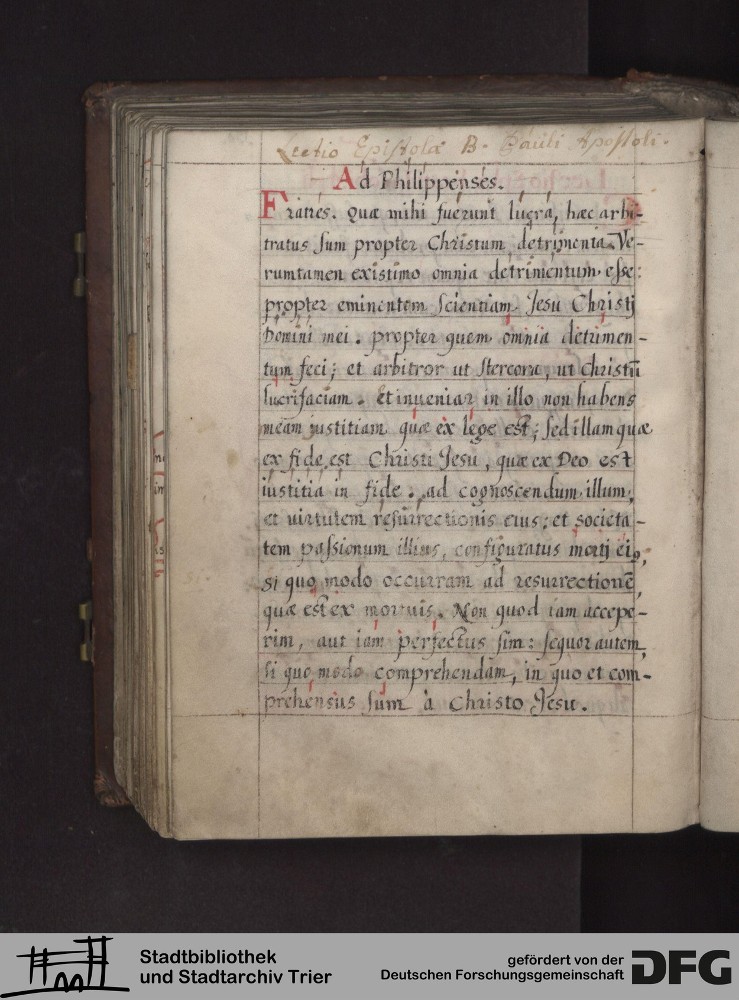 Lectio Epistolæ B. Pauli Apostoli.
Ad Philippenses.
Fratres. Quæ mihi fuerunt lucra, hæc arbi-
tratus sum propter Christum, detrimenta. Ve-
rumtamen existimo omnia detrimentum esse:
propter eminentem scientiam Jesu Christi
Domini mei. propter quem omnia detrimen-
tum feci; et arbitror ut stercora, ut Christū
lucrifaciam. Et inueniar in illo non habens
meam justitiam quæ ex lege est; sed illam quæ
ex fide est Christi Jesu, quæ ex Deo est
iustitia in fide. ad cognoscendum illum,
et uirtutem resurrectionis eius; et societa-
tem passionum illius, configuratus morti eiꝰ,
si quo modo occurram ad resurrectionē,
quæ est ex mortuis. Non quod iam accepe-
rim, aut iam perfectus sim: sequor autem,
si quo modo comprehendam, in quo et com-
prehensus sum à Christo Jesu.
Stadtbibliothek
und Stadtarchiv Trier
gefördert von der
Deutschen Forschungsgemeinschaft
DFG